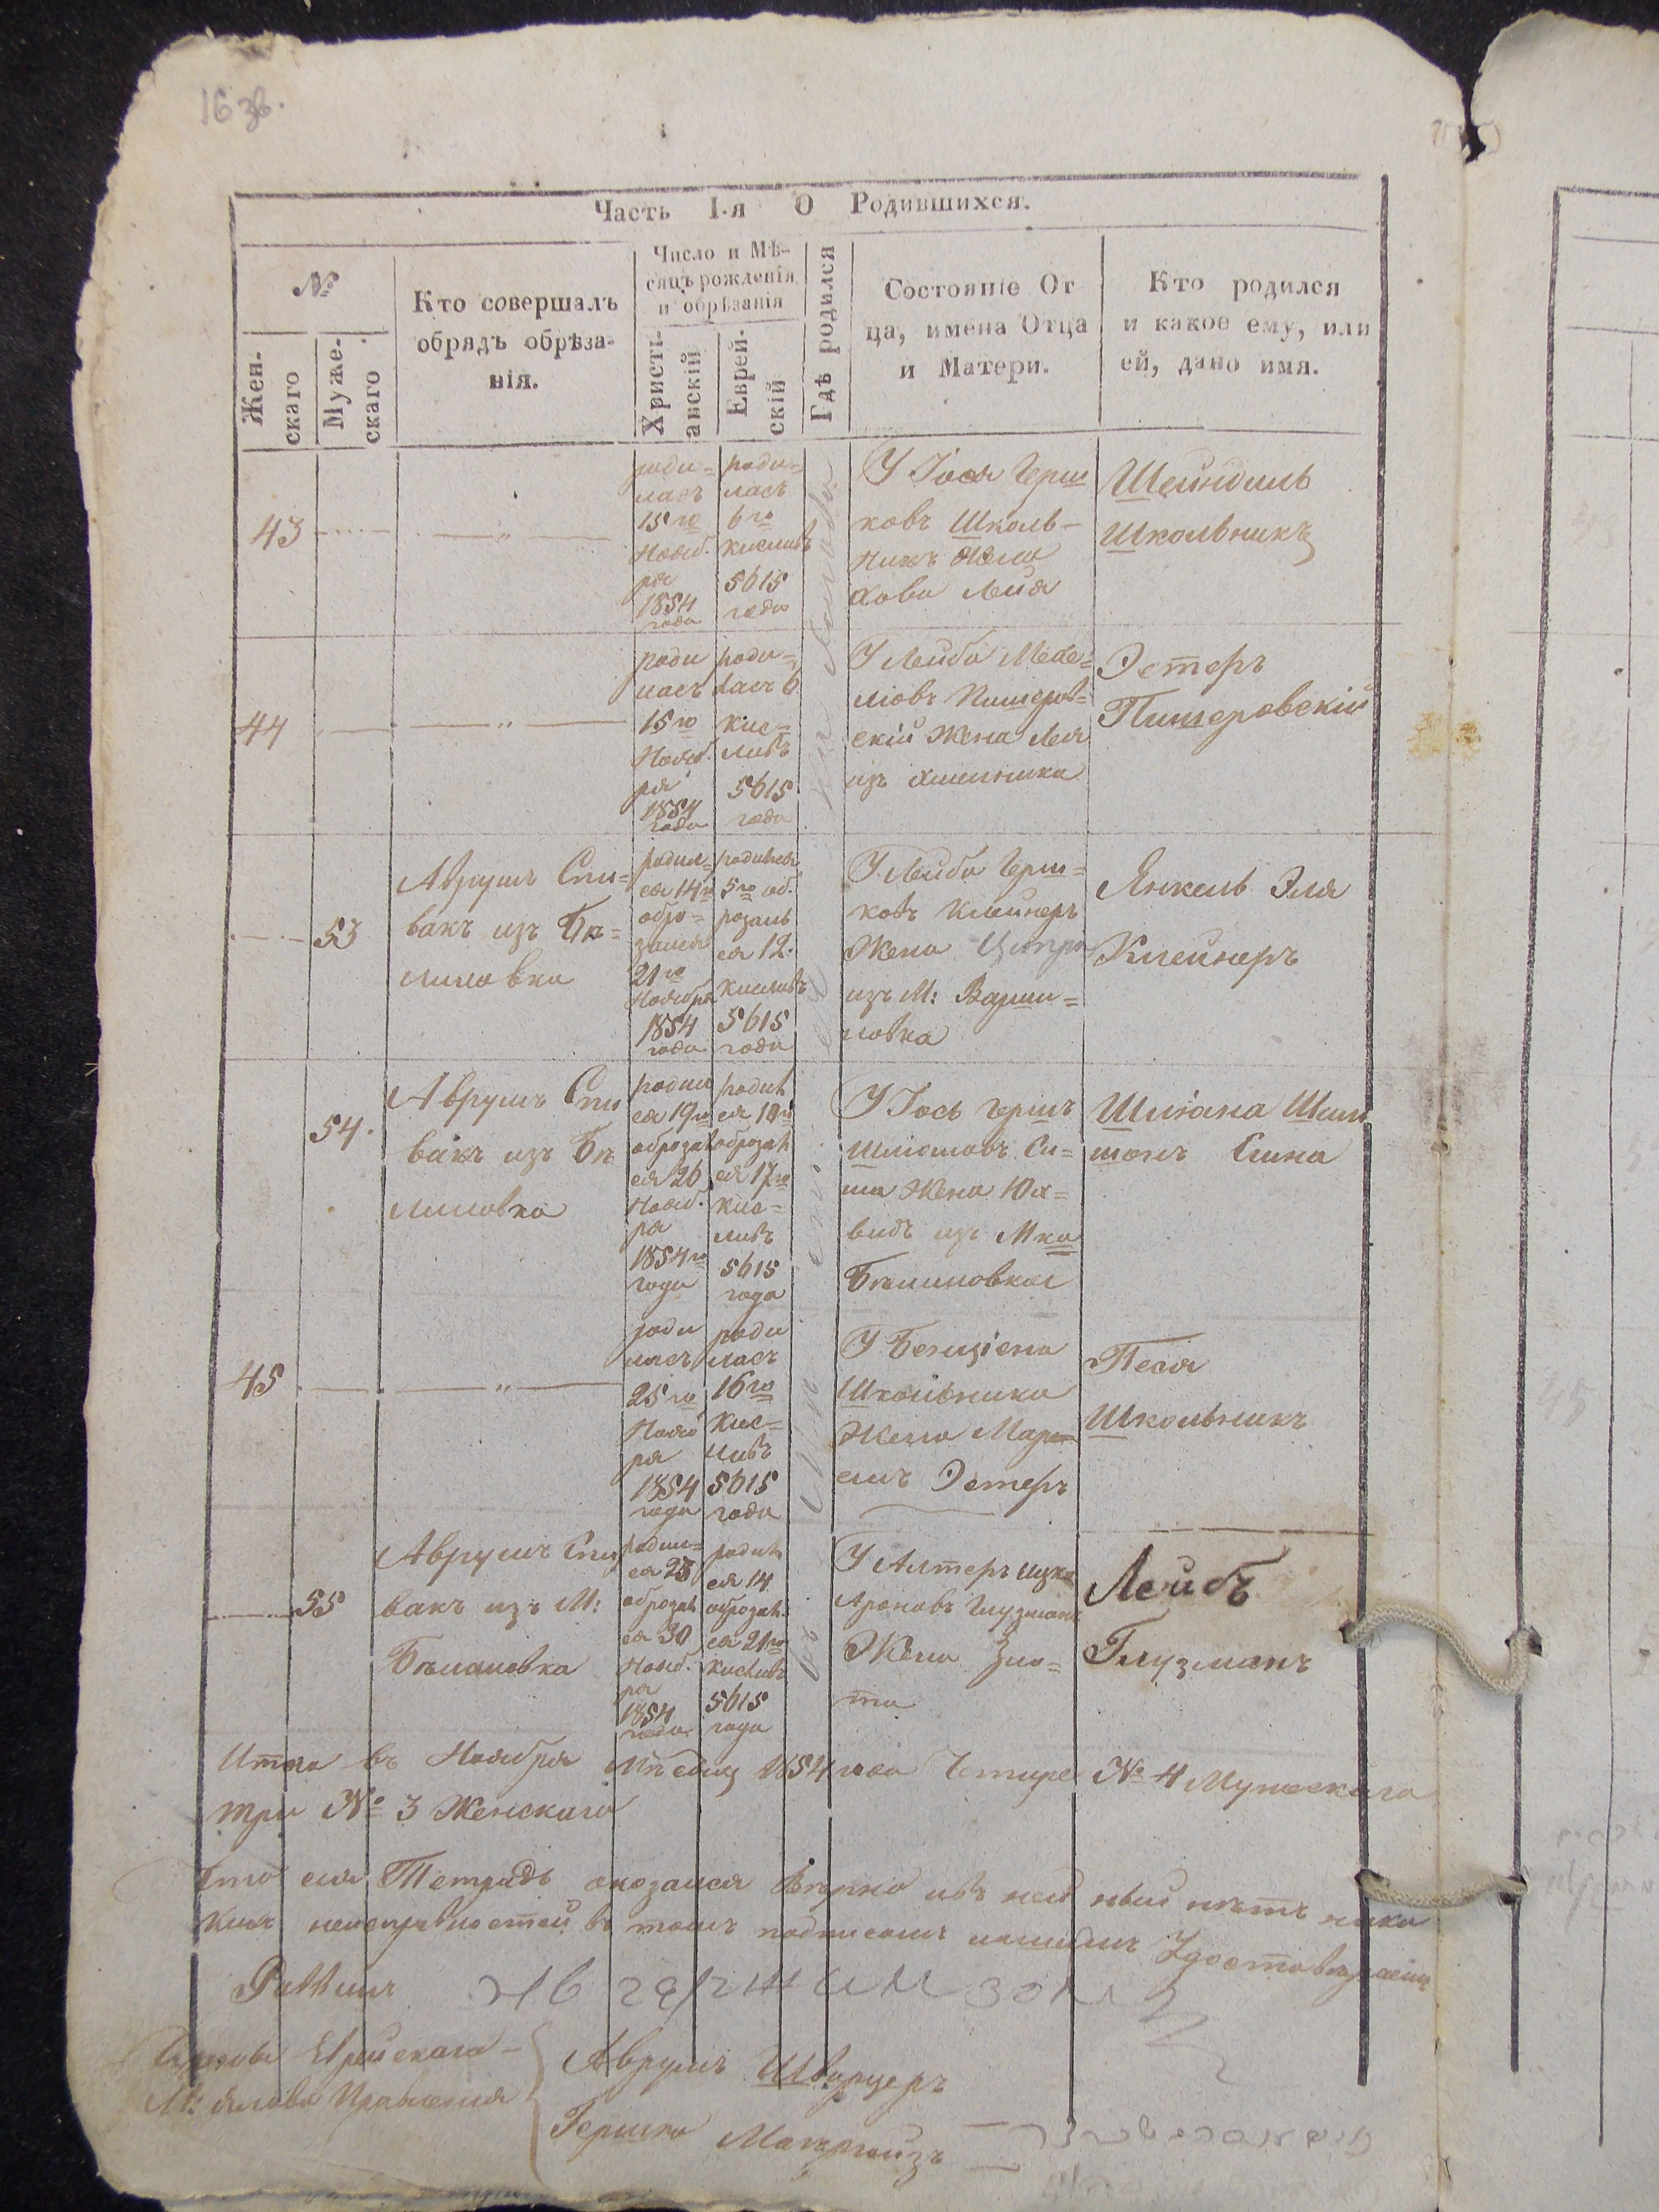 16 зв.
Часть I-я О Родившихся.
№
Жен-
скаго
Муже-
скаго
Кто совершалъ
обрядъ обрѣза-
нія.
Число и Мѣ-
сяцъ рожденія
и обрѣзанія
Христі-
анскій
Еврей-
скій
Гдѣ родился
Состояніе От
ца, имена Отца
и Матери.
Кто родился
и какое ему, или
ей, дано имя.
43
роди=
лась
15го
Нояб.
ря
1854
года
роди=
лась
6го
Кисливъ
5615
года
У Іося Герш
ковъ Школь-
никъ Жена
Хова Лейя
Шейндиль
Школьникъ
44
роди
лась
15го
Нояб.
ря
1854
года
роди=
лась 6
Кис=
ливъ
5615
года
У Лейба Мехе=
лювъ Пишеров=
скій Жена Лея
изъ Хмельника
Эстеръ
Пишеровскій
53
Аврумъ Спи=
вакъ изъ Бѣ=
лиловка
родил=
ся 14го
обре=
зался
21го
Ноября
1854
года
родился
5го об.
резалъ
ся 12.
Кисливъ
5615
года
У Лейба Герш=
ковъ Клейнеръ
Жена Ципра
изъ М: Вахни=
ловка
Янкель Эля
Клейнеръ
54.
Аврумъ Спи
вакъ изъ Бѣ
лиловка
родил
ся 19го
обрезал
ся 26
Нояб.
ря
1854го
года
родил
ся 10го
обрезал
ся 17го
Кис=
ливъ
5615
года
У Іось Гершъ
Шлюмовъ Си=
на Жена Юх=
видъ изъ Мка
Бѣлиловкы
Шліома Шим
шонъ Сина
45
роди
лась
25го
Нояб
ря
1854
года
роди
лась
16го
Кис=
ливъ
5615
года
У Бенціона
Школьника
Жена Мари=
емъ Эстеръ
Песя
Школьникъ
55
Аврумъ Спи
вакъ изъ М:
Бѣлиловка
родил=
ся 23
обрезал
ся 30
Нояб.
ря
1854
года
родил
ся 14
обрезал.
ся 21го
Кисливъ
5615
года
У Алтеръ Ицка
Ароновъ Глузманъ
Жена Зло=
та
Лейбъ
Глузманъ
Итого въ Ноября Мѣсяц 1854 года Четыре № 4 Мужескаго
три № 3 Женскаго
Что сія Тетрадь оказался Вѣрно и въ ней нѣтъ ника
кихъ неисправностей въ томъ подписомъ нашимъ Удостовѣряемъ
Раввинъ
Члены Еврейскаго
Правленія
Аврумъ Шварцеръ
Гершко